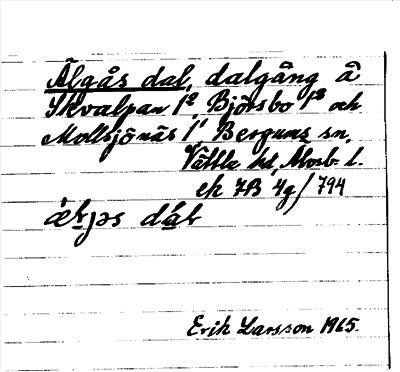 Älgås dal, dalgång å
Skvalpan 1², Björsbo 1³ och
Mollsjönäs 1¹ Bergums sn,
Vättle hd, Älvsb. l.
ek 7B 4g/794
dal
Erik Larsson 1965.